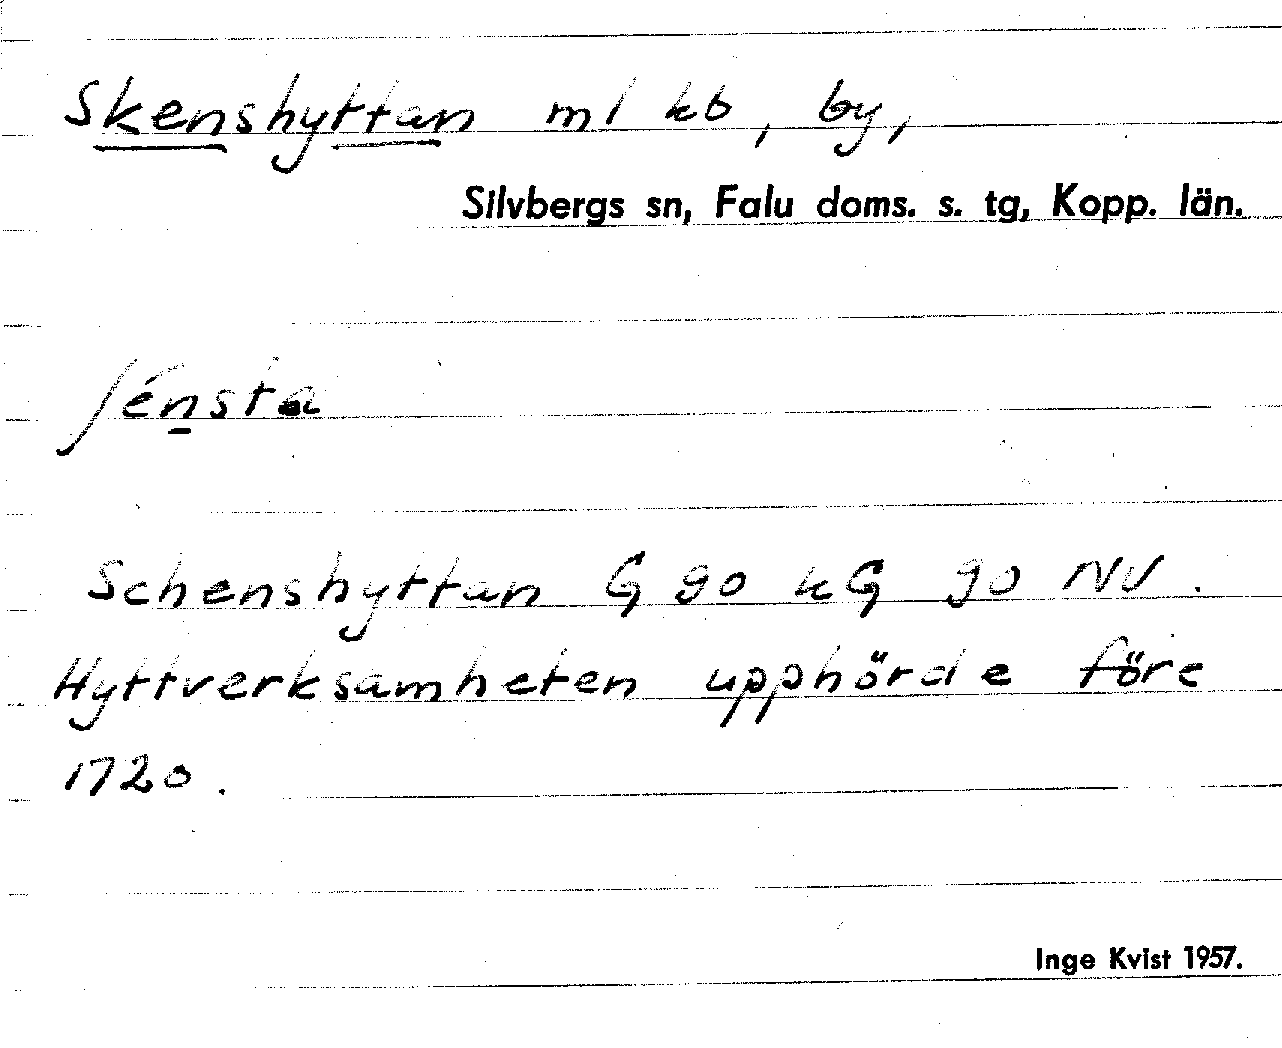 Skenshyttan ml kb, by,
Silvbergs sn, Falu doms. s. tg, Kopp. län.
ʃénsta
Schenshyttan G 90 kG 90 NV.
Hyttverksamheten upphörde före
1720.
Inge Kvist 1957.